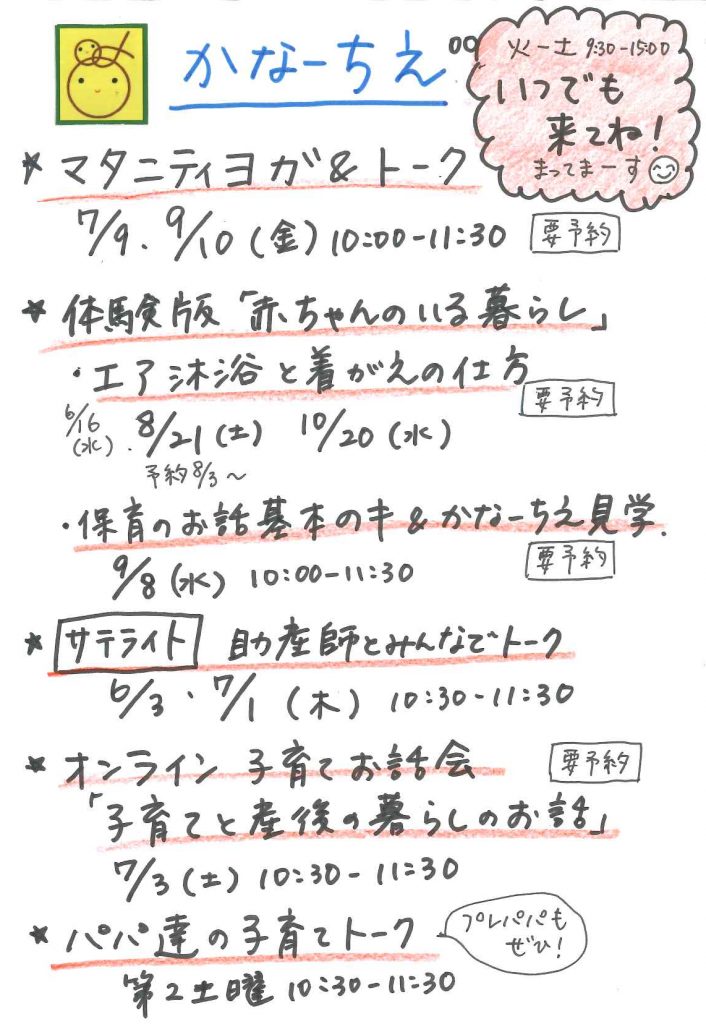 かなーちえ
火ー土 9:30-15:00
いつでも
来てね!
まってまーす
★マタニティヨガ&トーク
7/9・9/10(金)10:00-11:30 要予約
★体験版「赤ちゃんのいる暮らし」
・エア沐浴と着がえの仕方
要予約
6/16(水)・8/21(土) 10/20(水)
予約8/3〜
・保育のお話基本のキ&かなーちえ見学.
要予約
9/8(水) 10:00-11:30
★サテライト 助産師とみんなでトーク
6/3・7/1(木) 10:30-11:30
★オンライン子育てお話会 要予約
「子育てと産後の暮らしのお話」
7/3(土)10:30-11:30
★パパ達の子育てトーク
プレパパも
ぜひ!
第2土曜 10:30-11:30